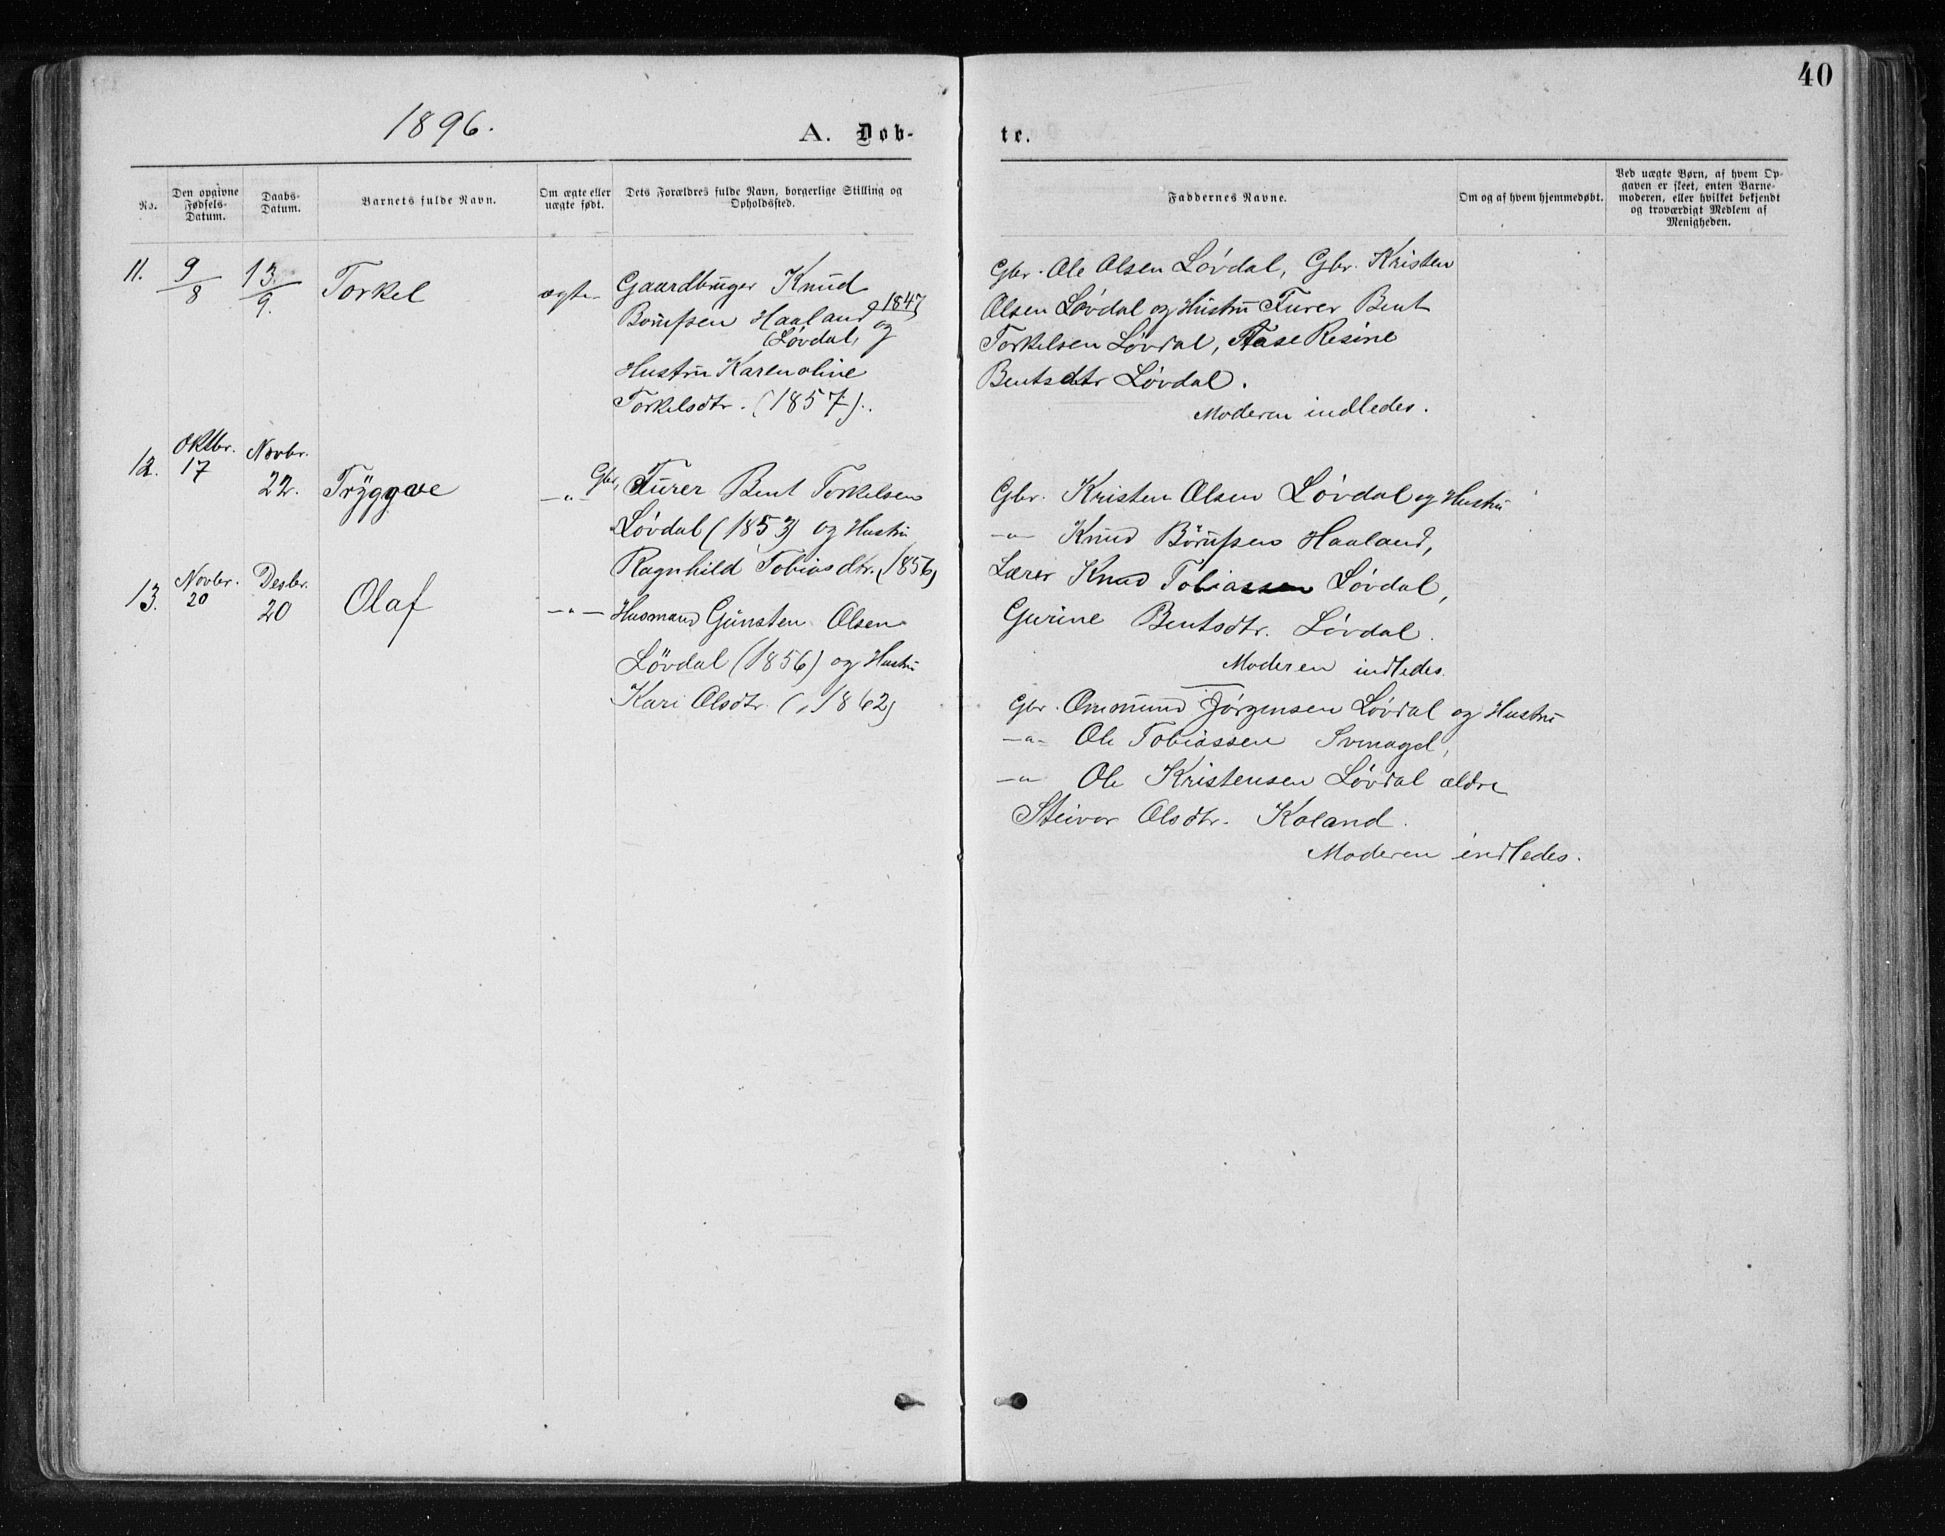 40
1896.
A. Døb-
te.
No.
Den opgivne Fødsels-Datum.
Daabs-Datum.
Barnets fulde Navn.
Om ægte eller uægte født.
Dets Forældres fulde Navn, borgerlige Stilling og Opholdssted.
Faddernes Navne.
Om og af hvem hjemmedøbt.
Ved uægte Børn, af hvem Op-
gaven er skeet, enten Barne-
moderen, eller hvilket bekjendt
og troværdigt Medlem af
Menigheden.
11. 9/8 13/9. Torkel ægte Gaardbruger Knud
Børufsen Haaland 1847
(Løvdal) og
Hustru Karenoline
Torkelsdtr. (1857).
Gbr. Ole Olsen Løvdal, Gbr. Kristen
Olsen Løvdal og Hustru Furer Bent
Torkelsen Løvdal, Resine
Bentsdtr Løvdal.
Moderen indledes.
12. Oktbr. 17 Novbr. 22. Tryggve —"— Gbr. Furer Bent Torkelsen
Løvdal (1853) og Hustru
Ragnhild Tobiasdtr. (1856)
Gbr. Kristen Olsen Løvdal og Hustru
—"— Knud Børufsen Haaland,
Lærer Knud Tobiassen Løvdal,
Gurine Bentsdtr. Løvdal.
Moderen indledes.
13. Novbr. 20 Desbr. 20 Olaf —"— Husmand Gunsten Olsen
Løvdal (1856) og Hustru
Kari Olsdtr. (1862)
Gbr. Ommund Jørgensen Løvdal og Hustru
—"— Ole Tobiassen
—"— Ole Kristensen Løvdal ældre
Steivor Olsdtr. Koland.
Moderen indledes.